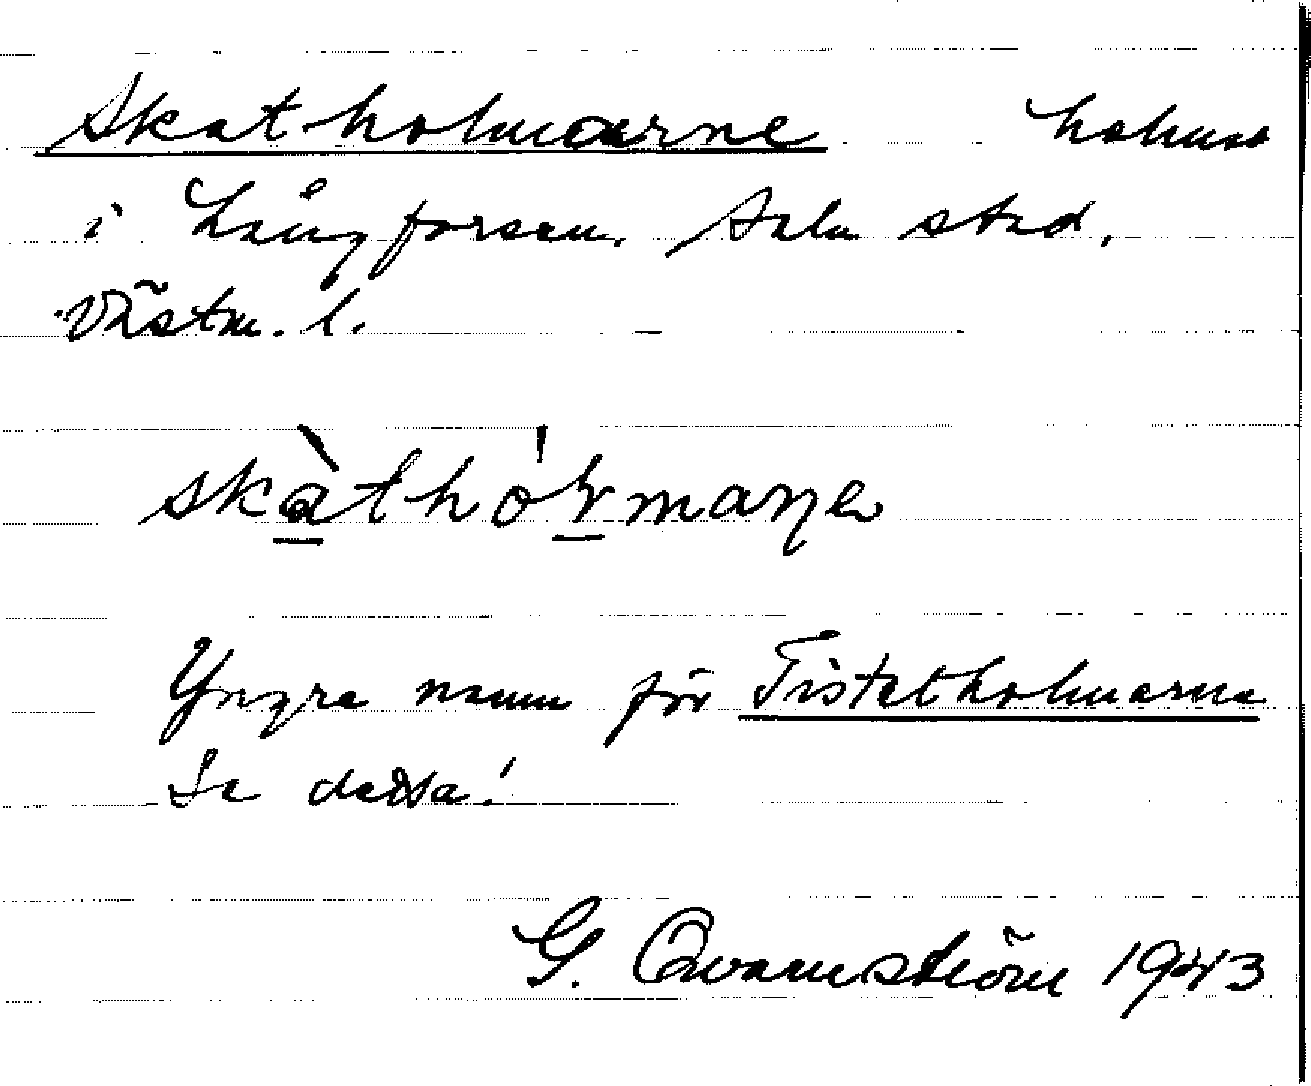 Skatholmarne holmar
i Långforsen, Sala stad,
Västm. l.
skàthólmaṇe
Yngre namn för Tistetholmarna
Se dessa!
G. Qvarnström 1943